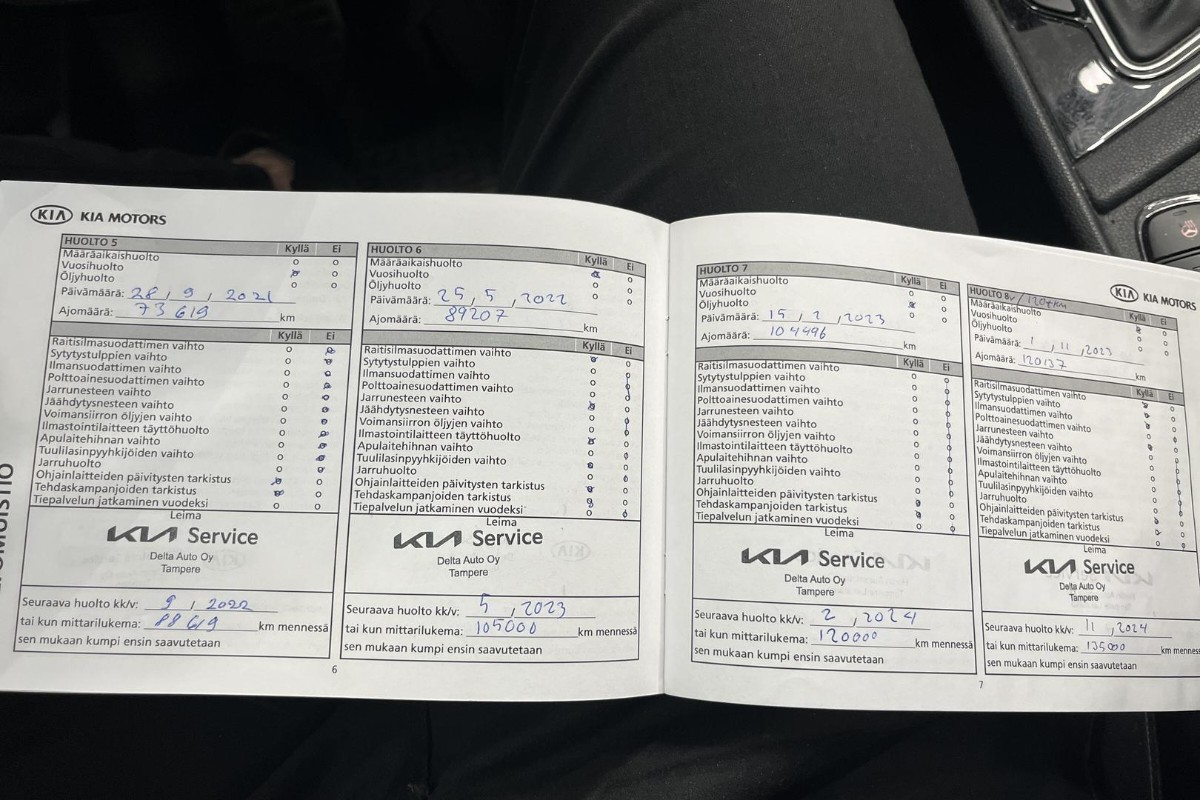 KIA KIA MOTORS
HUOLTO 5 Kyllä Ei
Määräaikaishuolto
Vuosihuolto
Öljyhuolto
Päivämäärä: 28, 9, 2021
Ajomäärä: 73 619 km
Kyllä Ei
Raitisilmasuodattimen vaihto
Sytytystulppien vaihto
Ilmansuodattimen vaihto
Polttoainesuodattimen vaihto
Jarrunesteen vaihto
Jäähdytysnesteen vaihto
Voimansiirron öljyjen vaihto
Ilmastointilaitteen täyttöhuolto
Apulaitehihnan vaihto
Tuulilasinpyyhkijöiden vaihto
Jarruhuolto
Ohjainlaitteiden päivitysten tarkistus
Tehdaskampanjoiden tarkistus
Tiepalvelun jatkaminen vuodeksi
Leima
KIA Service
Delta Auto Oy
Tampere
Seuraava huolto kk/v: 9, 2022
tai kun mittarilukema: 88619 km mennessä
sen mukaan kumpi ensin saavutetaan
HUOLTO 6 Kyllä Ei
Määräaikaishuolto
Vuosihuolto
Öljyhuolto
Päivämäärä: 25, 5, 2022
Ajomäärä: 89207 km
Kyllä Ei
Raitisilmasuodattimen vaihto
Sytytystulppien vaihto
Ilmansuodattimen vaihto
Polttoainesuodattimen vaihto
Jarrunesteen vaihto
Jäähdytysnesteen vaihto
Voimansiirron öljyjen vaihto
Ilmastointilaitteen täyttöhuolto
Apulaitehihnan vaihto
Tuulilasinpyyhkijöiden vaihto
Jarruhuolto
Ohjainlaitteiden päivitysten tarkistus
Tehdaskampanjoiden tarkistus
Tiepalvelun jatkaminen vuodeksi
Leima
KIA Service
Delta Auto Oy
Tampere
Seuraava huolto kk/v: 5, 2023
tai kun mittarilukema: 105000 km mennessä
sen mukaan kumpi ensin saavutetaan
6
HUOLTO 7 Kyllä Ei
Määräaikaishuolto
Vuosihuolto
Öljyhuolto
Päivämäärä: 15, 2, 2023
Ajomäärä: 104496 km
Kyllä Ei
Raitisilmasuodattimen vaihto
Sytytystulppien vaihto
Ilmansuodattimen vaihto
Polttoainesuodattimen vaihto
Jarrunesteen vaihto
Jäähdytysnesteen vaihto
Voimansiirron öljyjen vaihto
Ilmastointilaitteen täyttöhuolto
Apulaitehihnan vaihto
Tuulilasinpyyhkijöiden vaihto
Jarruhuolto
Ohjainlaitteiden päivitysten tarkistus
Tehdaskampanjoiden tarkistus
Tiepalvelun jatkaminen vuodeksi
Leima
KIA Service
Delta Auto Oy
Tampere
Seuraava huolto kk/v: 2, 2024
tai kun mittarilukema: 120000 km mennessä
sen mukaan kumpi ensin saavutetaan
KIA KIA MOTORS
HUOLTO 8 Kyllä Ei
Määräaikaishuolto
Vuosihuolto
Öljyhuolto
Päivämäärä: 1, 11, 2023
Ajomäärä: 120137 km
Kyllä Ei
Raitisilmasuodattimen vaihto
Sytytystulppien vaihto
Ilmansuodattimen vaihto
Polttoainesuodattimen vaihto
Jarrunesteen vaihto
Jäähdytysnesteen vaihto
Voimansiirron öljyjen vaihto
Ilmastointilaitteen täyttöhuolto
Apulaitehihnan vaihto
Tuulilasinpyyhkijöiden vaihto
Jarruhuolto
Ohjainlaitteiden päivitysten tarkistus
Tehdaskampanjoiden tarkistus
Tiepalvelun jatkaminen vuodeksi
Leima
KIA Service
Delta Auto Oy
Tampere
Seuraava huolto kk/v: 11, 2024
tai kun mittarilukema: 135000 km mennessä
sen mukaan kumpi ensin saavutetaan
7